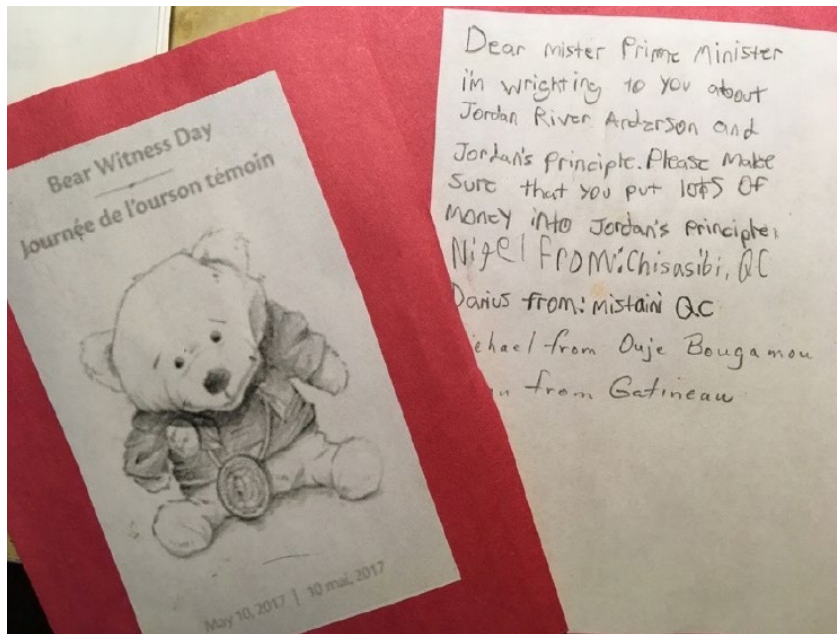 Bear Witness Day
Journée de l'ourson témoin
May 10, 2017 | 10 mai, 2017
Dear mister Prime Minister
i'm wrighting to you about
Jordan River Anderson and
Jordan's Principle. Please make
sure that you put lots of
money into Jordan's principle.
Nigel From: Chisasibi, QC
Darius from: mistaini QC
from Ouje Bougamou
from Gatineau